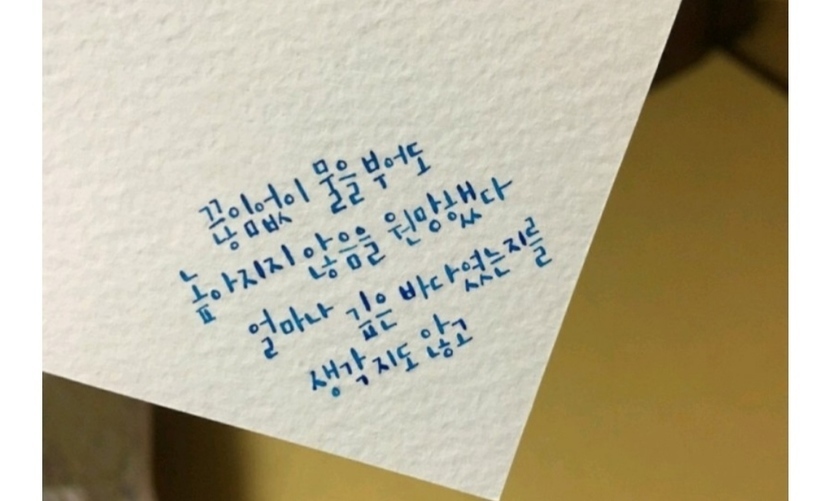 끊임없이 물을 부어도
높아지지 않음을 원망했다
얼마나 깊은 바다였는지를
생각지도 않고